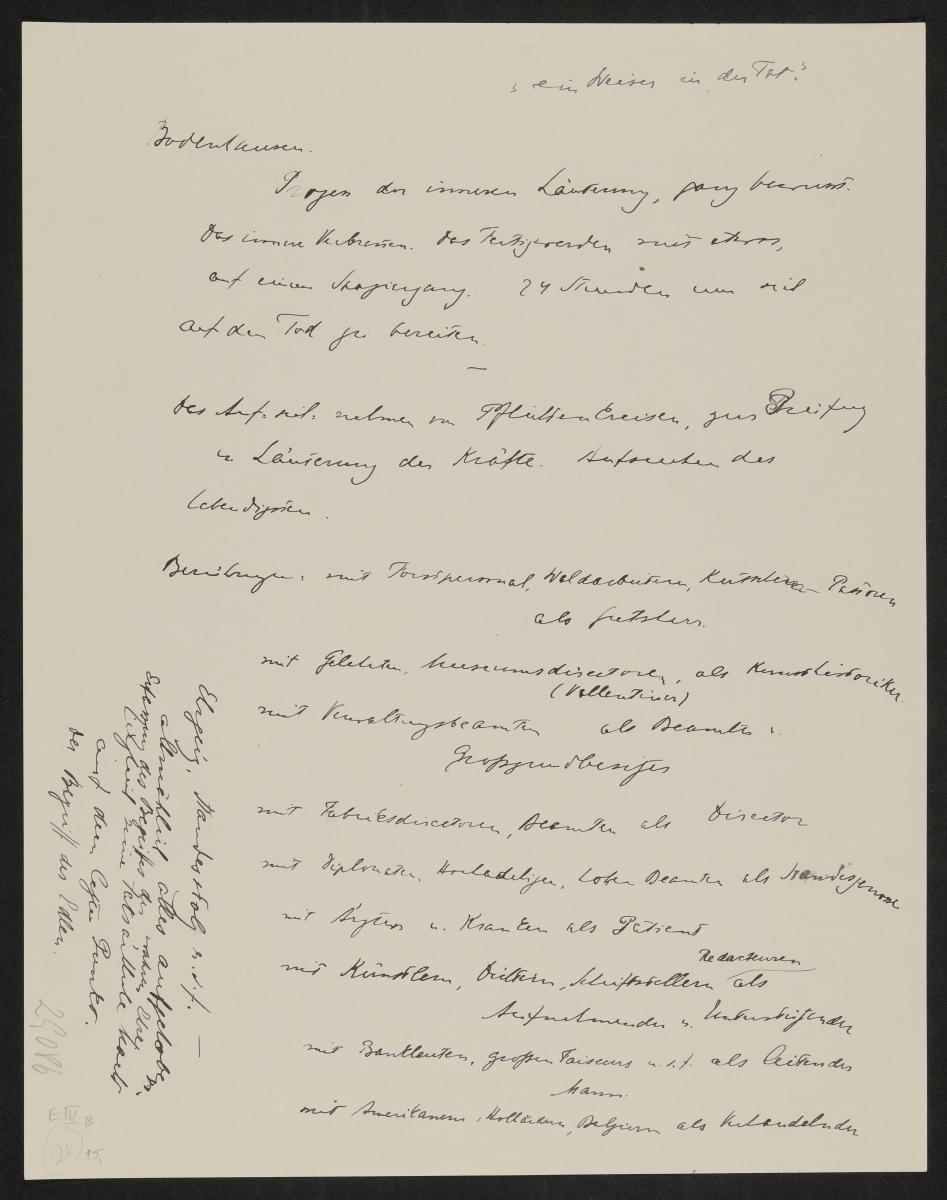 „ein Weiser in der Tat"
Bodenhausen.
Prozess der inneren Läuterung, ganz bewusst.
Das innere Verbrennen. Das Fertigwerden mit etwas,
auf einem Spaziergang. 24 Stunden um sich
auf den Tod zu bereiten.
—
Das Auf-sich-nehmen von Pflichtenkreisen, zur Prüfung
u Läuterung der Kräfte. Aufsuchen des
lebendigsten.
Berührungen: mit Forstpersonal, Waldarbeitern, Pastoren
als Gutsherr.
mit Gelehrten, Museumsdirectoren, als Kunsthistoriker.
(Vallentiner)
mit Verwaltungsbeamten als Beamter u.
Großgrundbesitzer
mit Fabriksdirectoren, Beamten als Director
mit Diplomaten, Hochadeligen, hohen Beamten als Standesgenosse
mit Ärzten u. Kranken als Patient
Redacteuren
mit Künstlern, Dichtern, Schriftstellern als
Aufnehmender u. Unterstützender
mit Bankleuten, großen Faiseurs u.s.f. als leitender
Mann.
mit Amerikanern, Holländern, Belgiern als Verhandelnder
Ehrgeiz, Standesstolz u.s.f. —
allmählich alles aufgehoben.
des Begriffes der wahren Ehre
auf dem letzten Punkt.
Der Begriff des Edlen.
E IV B
26
15.